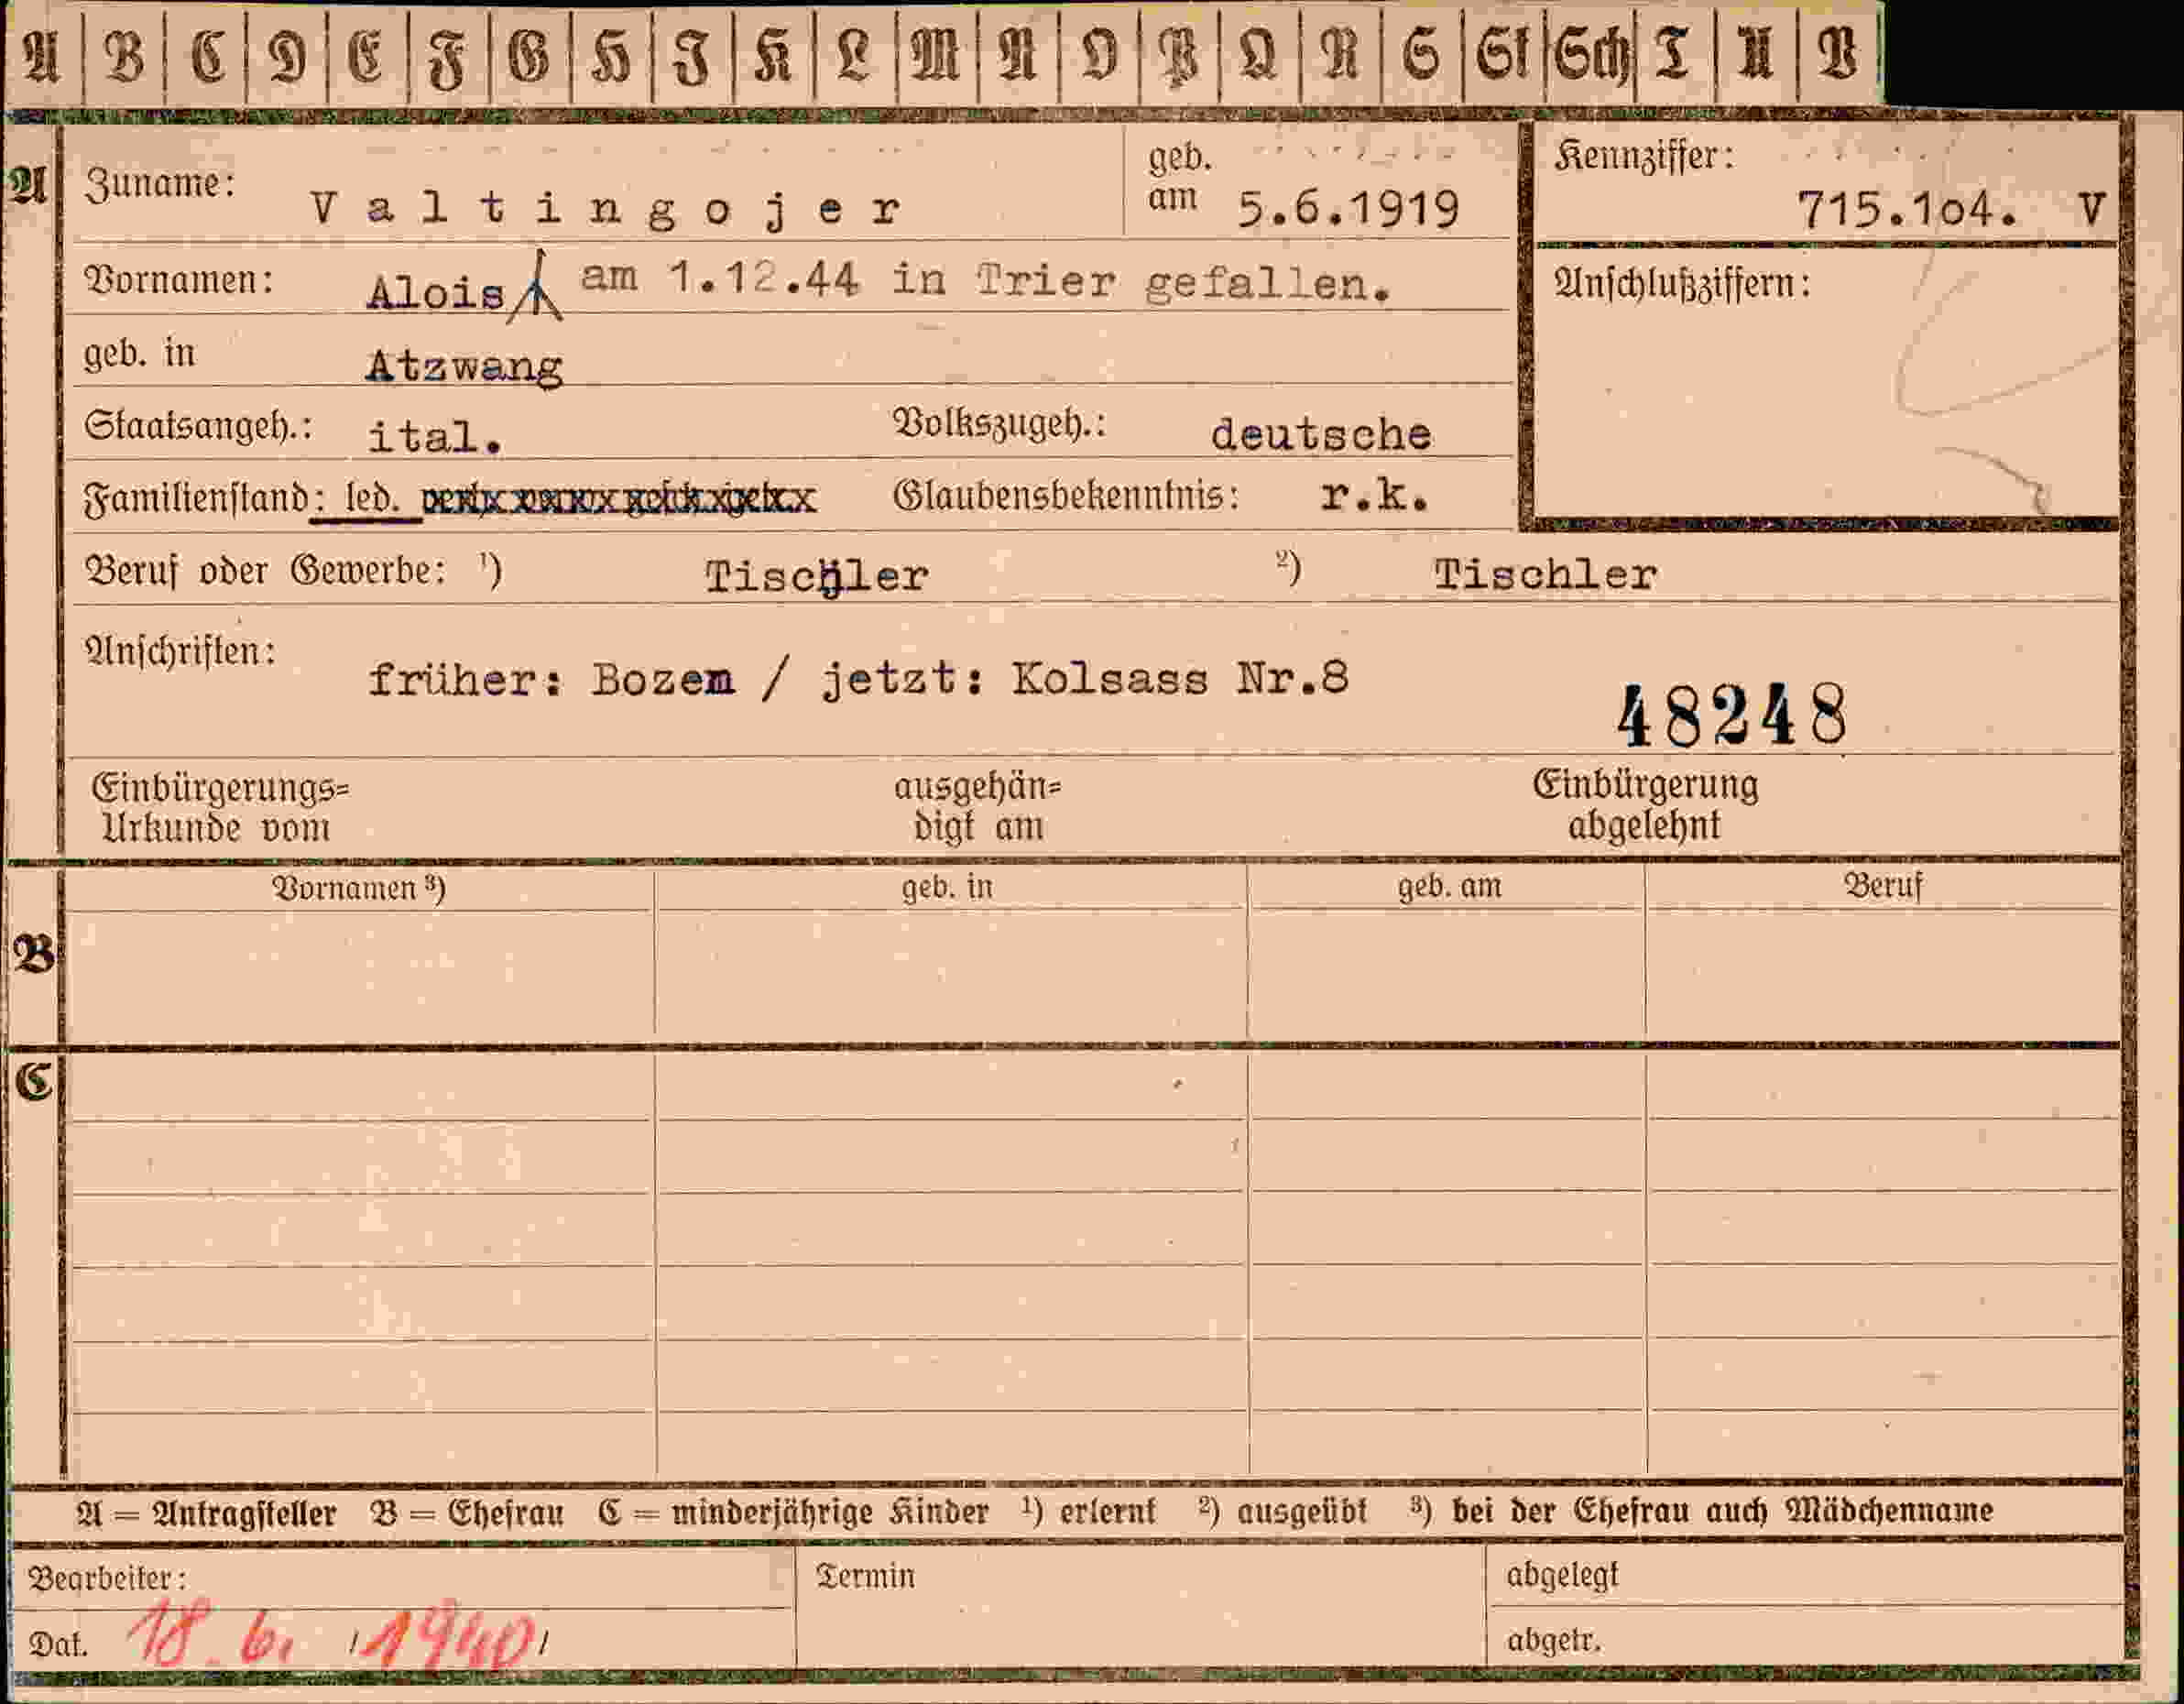 A B C D E F G H I K L M N O P Q R S St Sch T U V
A Zuname: Valtingojer geb. am 5.6.1919 Kennziffer: 715.1o4. V
Vornamen: Alois am 1.12.44 in Trier gefallen. Anschlußziffern:
geb. in Atzwang
Staatsangeh.: ital. Volkszugeh.: deutsche
Familienstand: led. Glaubensbekenntnis: r.k.
Beruf oder Gewerbe: ¹) Tischler ²) Tischler
Anschriften: früher: Bozen / jetzt: Kolsass Nr.8
48248
Einbürgerungs= ausgehän= Einbürgerung
Urkunde vom digt am abgelehnt
Vornamen ³) geb. in geb. am Beruf
B
C
A = Antragsteller B = Ehefrau C = minderjährige Kinder ¹) erlernt ²) ausgeübt ³) bei der Ehefrau auch Mädchenname
Bearbeiter: Termin abgelegt
Dat. 18. 6. 1940 abgetr.